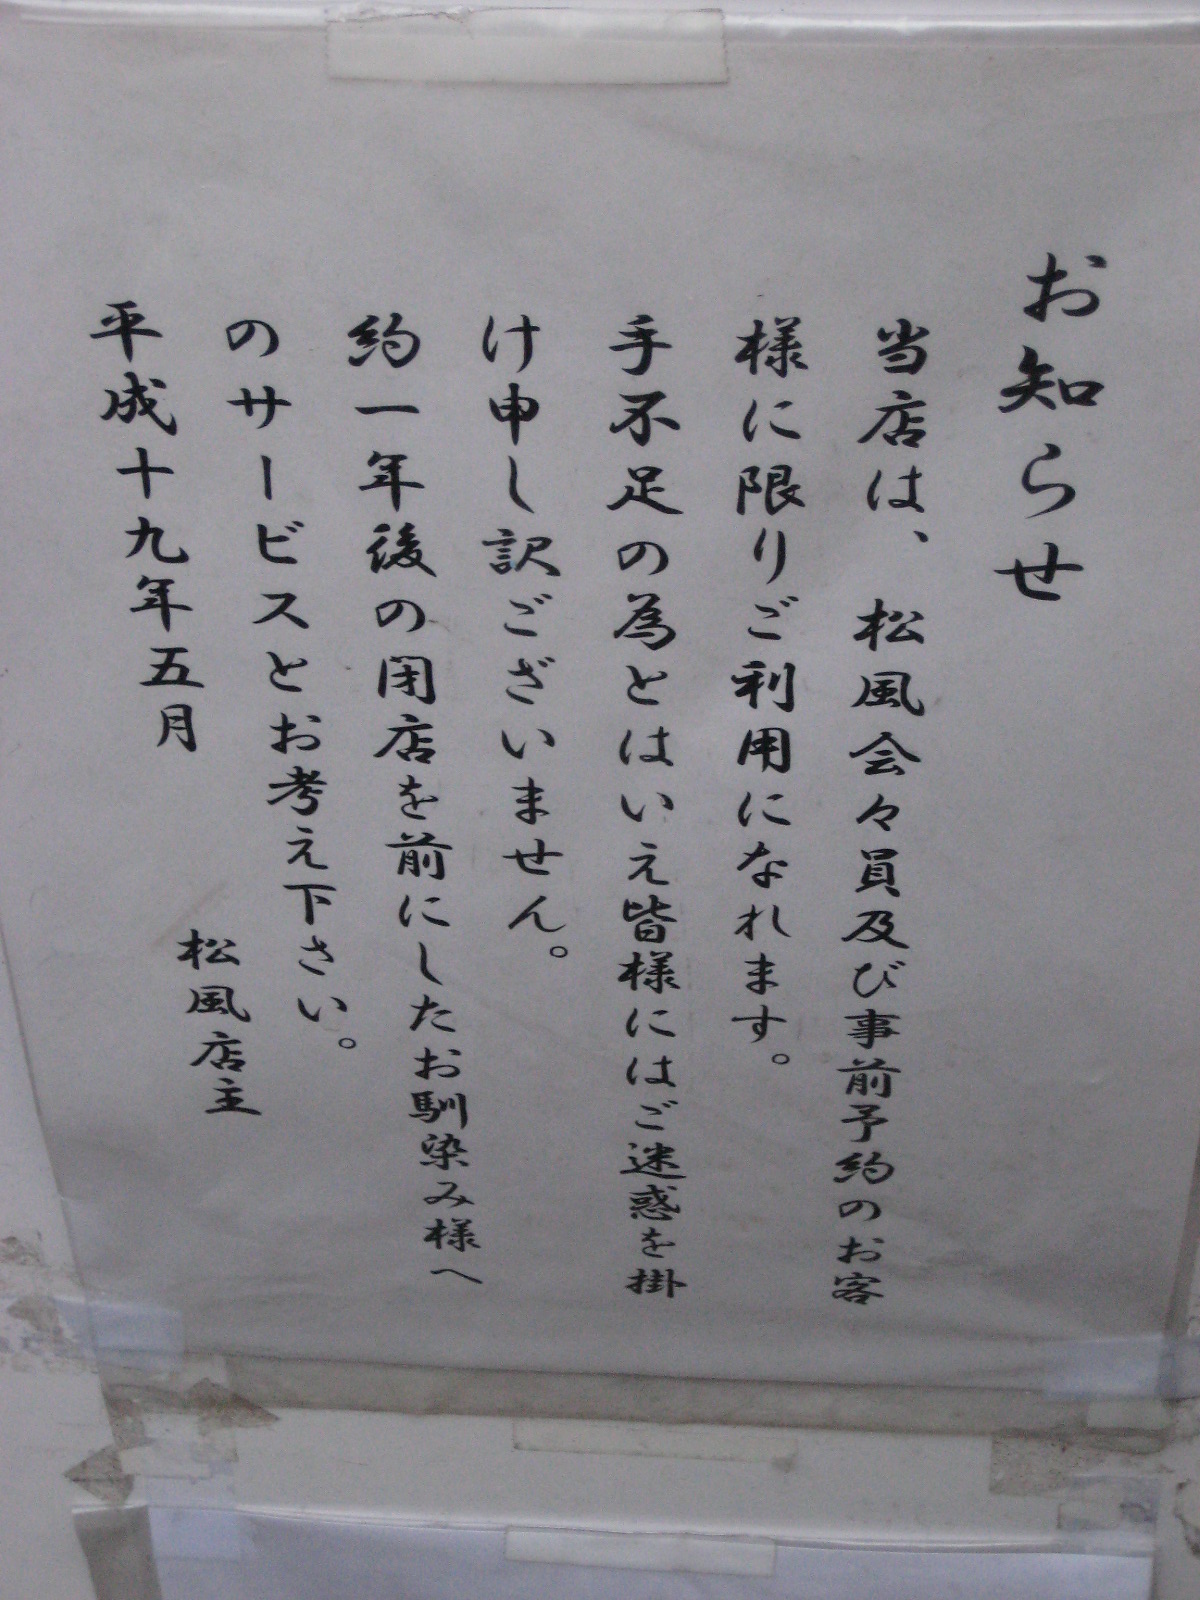 お知らせ
当店は、松風会々員及び事前予約のお客
様に限りご利用になれます。
手不足の為とはいえ皆様にはご迷惑を掛
け申し訳ございません。
約一年後の閉店を前にしたお馴染み様へ
のサービスとお考え下さい。
平成十九年五月
松風店主